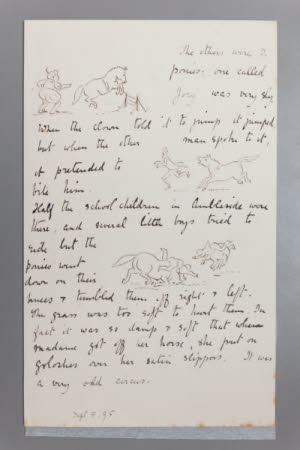 The others were 2
ponies: one called
Joey was very shy
When the clown told it to jump it jumped
but when the other man spoke to it,
it pretended to
bite him.
Half the school children in Ambleside were
there, and several little boys tried to
ride but the
ponies went
down on their
knees & tumbled them off right & left.
The grass was too soft to hurt them. In
fact it was so damp & soft that when
madame got off her horse, she put on
goloshes over her satin slippers. It was
a very odd circus.
Sept 8. 95